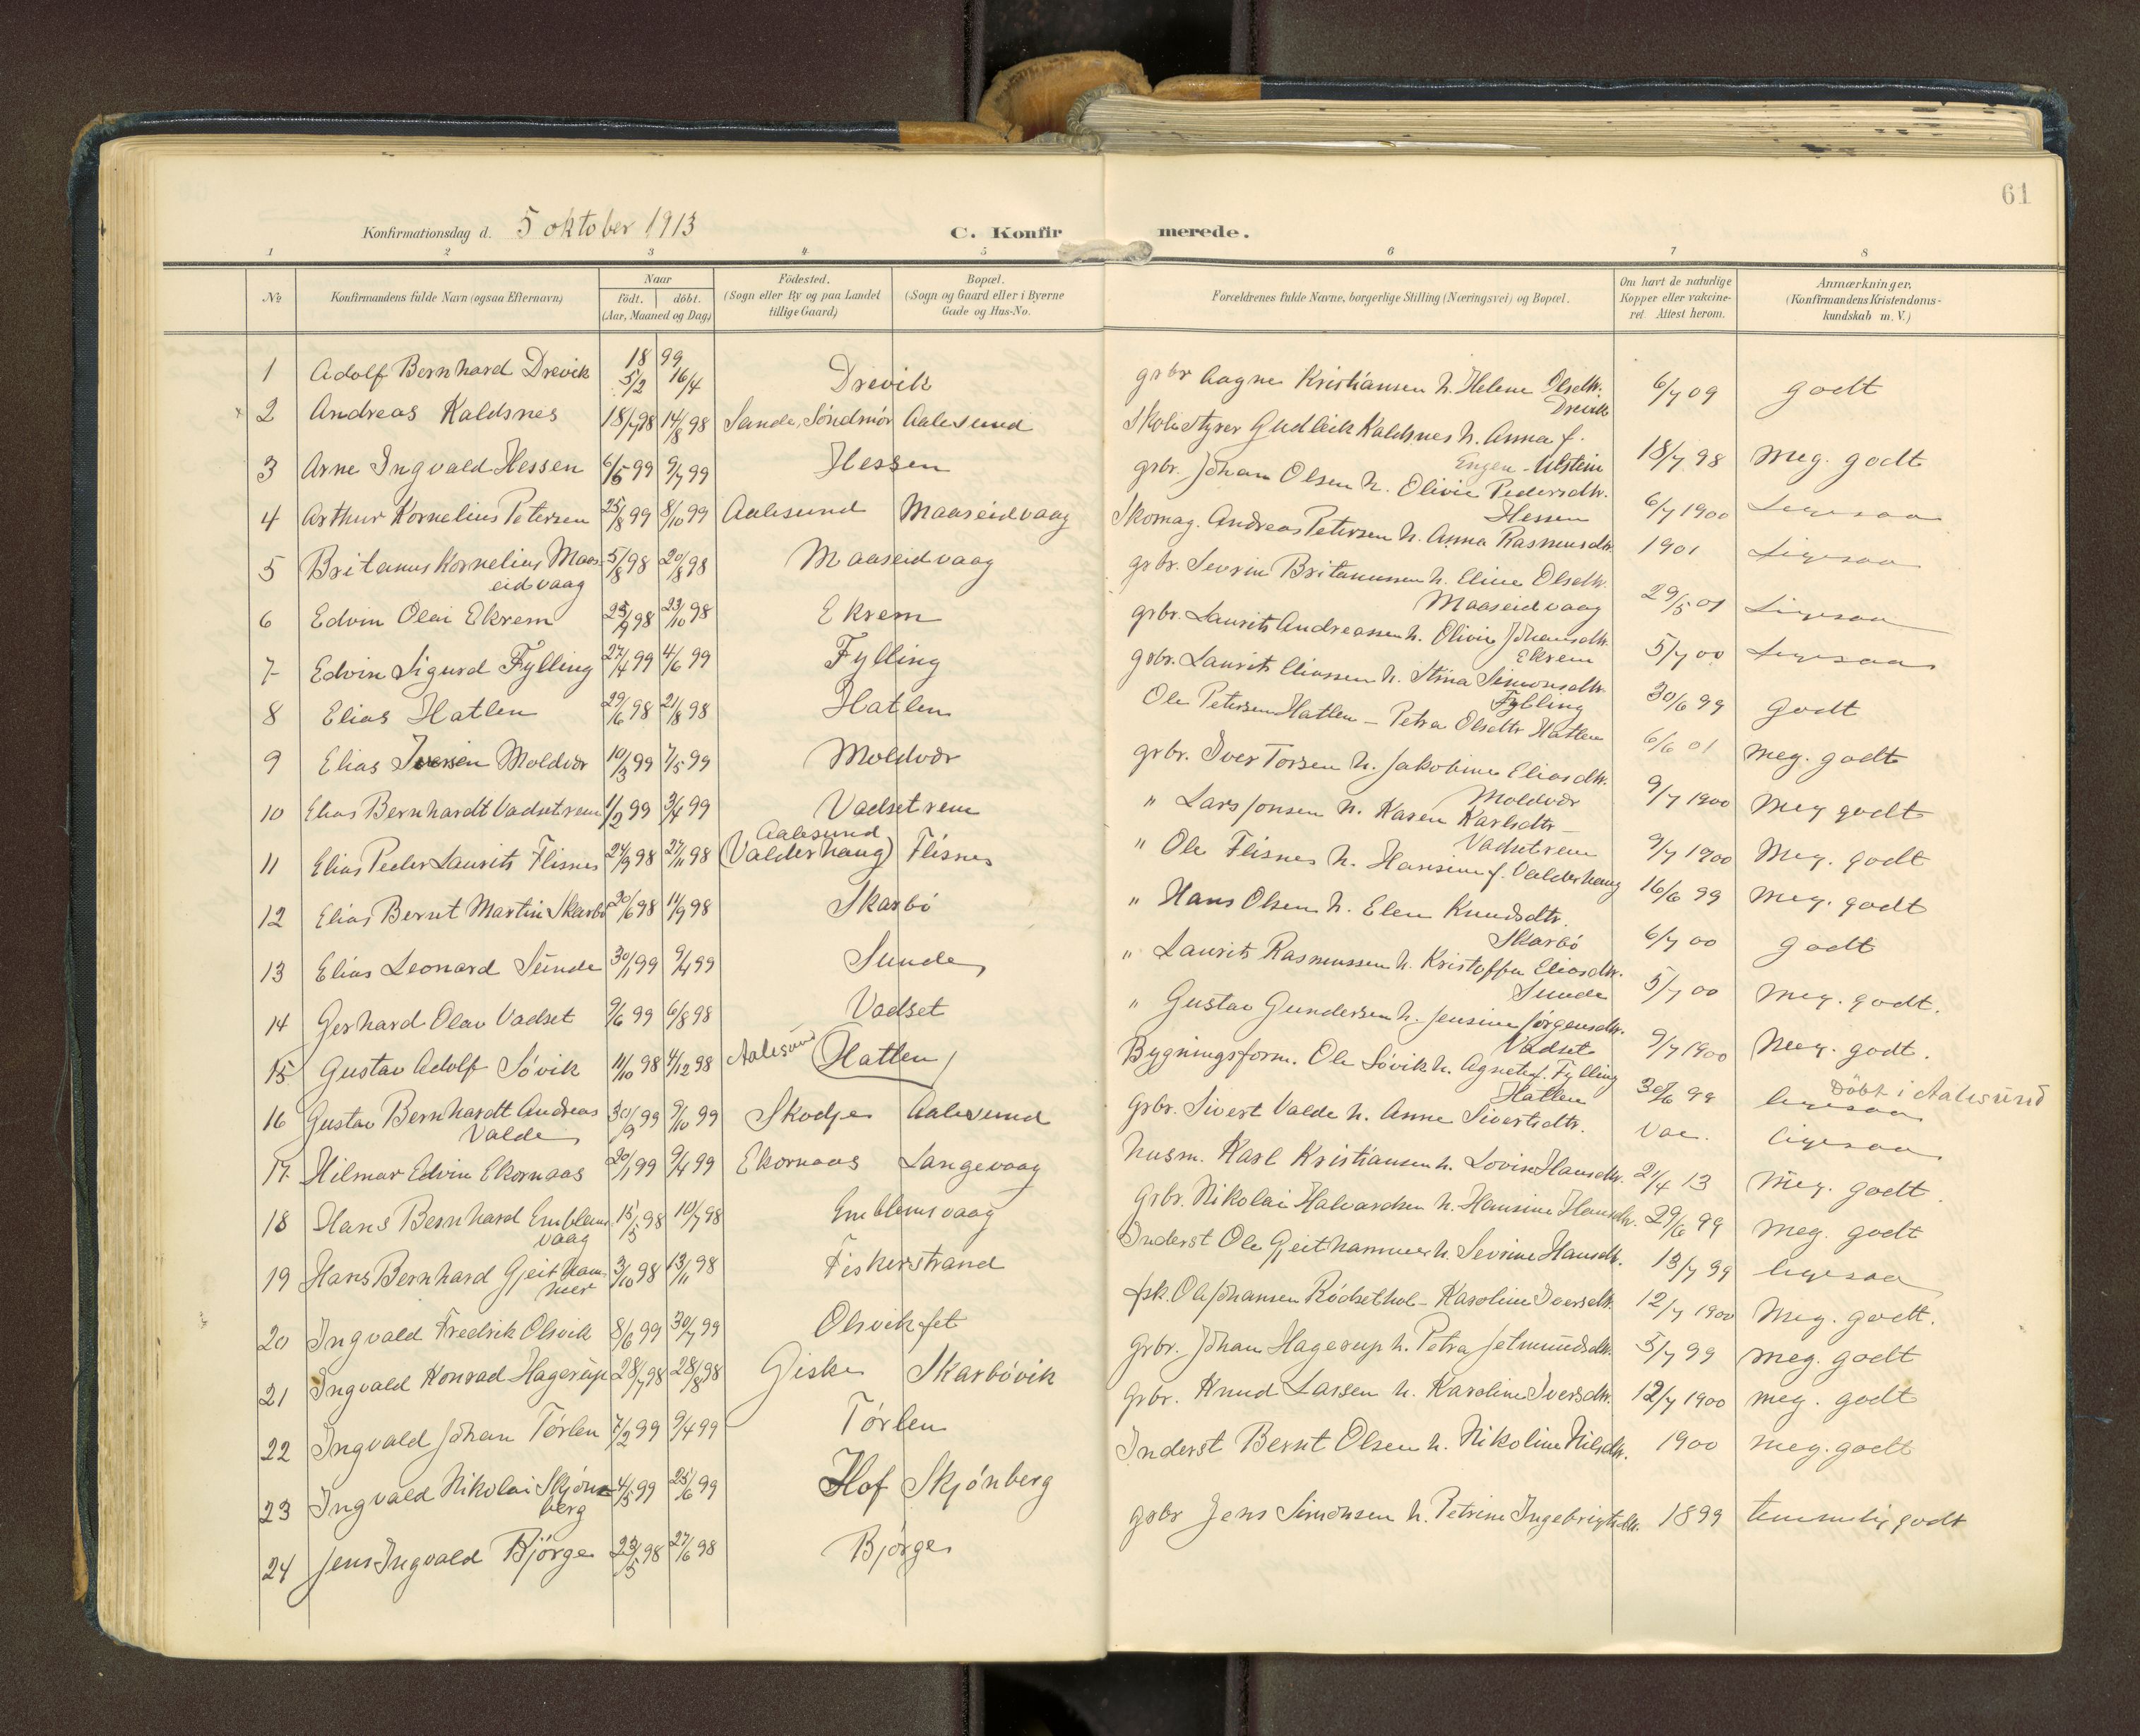 61
Konfirmationsdag d. 5 oktober 1913
C. Konfirmerede.
1 2 3 4 5 6 7 8
No Konfirmandens fulde Navn (ogsaa Efternavn) Naar født. døbt. (Aar, Maaned og Dag) Fødested. (Sogn eller By og paa Landet tillige Gaard) Bopæl. (Sogn og Gaard eller i Byerne Gade og Hus-No. Forældrenes fulde Navne, borgerlige Stilling (Næringsvei) og Bopæl. Om havt de naturlige Kopper eller vakcineret. Attest herom. Anmærkninger. (Konfirmandens Kristendomskundskab m. V.)
1 Adolf Bernhard Drevik 1899 5/2 16/4 Drevik grbr Aagne Kristiansen h. Helene Olsdtr. Drevik 6/7 09 godt
2 Andreas Kaldsnes 18/7 98 14/8 98 Sande, Söndmör Aalesund Skolestyrer Gudleik Kaldsnes h. Anna f. Engen - Ulstein 18/7 98 Meg. godt
3 Arne Ingvald Hessen 6/5 99 9/7 99 Hessen grbr. Johan Olsen h. Olivie Pedersdtr. Hessen 6/7 1900 Ligesaa
4 Arthur Kornelius Petersen 25/8 99 8/10 99 Aalesund Maaseidvaag Skomag. Andreas Petersen h. Anna Rasmusdtr. 1901 Ligesaa
5 Britanus Kornelius Maaseidvaag 5/8 98 20/8 98 Maaseidvaag grbr. Sevrin Britanussen h. Eline Olsdtr. Maaseidvaag 29/5 01 Ligesaa
6 Edvin Olai Ekrem 25/9 98 23/10 98 Ekrem grbr. Laurits Andreassen h. Olivie Johansdtr. Ekrem 5/7 00 Ligesaa
7 Edvin Sigurd Fylling 27/4 99 4/6 99 Fylling grbr. Laurits Eliassen h. Stina Simonsdtr. Fylling 30/6 99 godt
8 Elias Hatlen 29/6 98 21/8 98 Hatlen Ole Petersen Hatlen - Petra Olsdtr Hatlen 6/6 01 meg. godt
9 Elias Iversen Moldvær 10/3 99 7/5 99 Moldvær grbr. Iver Torsen h. Jakobine Eliasdtr. Moldvær 9/7 1900 Meg godt
10 Elias Bernhardt Vadsetrem 11/2 99 3/4 99 Vadsetrem " Lars Jonsen h. Karen Karlsdtr - Vadsetrem 9/7 1900 Meg. godt
11 Elias Peder Laurits Flisnes 24/9 98 27/11 98 Aalesund (Valderhaug) Flisnes " Ole Flisnes h. Hansine f. Valderhaug 16/6 99 Meg. godt
12 Elias Bernt Martin Skarbö 30/6 98 11/9 98 Skarbö " Hans Olsen h. Elen Knudsdtr. Skarbö 6/7 00 godt
13 Elias Leonard Sunde 30/1 99 9/4 99 Sunde " Laurits Rasmussen h. Kristoffa Eliasdtr. Sunde 5/7 00 Meg. godt.
14 Gerhard Olav Vadset 9/6 99 6/8 98 Vadset " Gustav Gundersen h. Jensine Jörgensdtr. Vadset 9/7 1900 Meg. godt.
15 Gustav Adolf Sövik 11/10 98 4/12 98 Aalesund (Hatlen) Bygningsform. Ole Sövik h. Agnete f. Fylling Hatlen 30/6 99 ligesaa Döbt i Aalesund
16 Gustav Bernhardt Andreas Valde 30/9 99 9/10 99 Skodje Aalesund Grbr. Sivert Valde h. Anne Sivertsdtr. Vac. ligesaa
17 Hilmar Edvin Ekornaas 20/1 99 9/4 99 Ekornaas Langevaag husm. Karl Kristiansen h. Lovise Hansdtr. 21/4 13 Meg. godt.
18 Hans Bernhard Emblemsvaag 15/5 98 10/7 98 Emblemsvaag Grbr. Nikolai Halvardsen h. Hansine Hansdtr. 29/6 99 Meg. godt
19 Hans Bernhard Gjeithammer 3/10 98 13/11 98 Fiskerstrand Inderst Ole Gjeithammer h. Sevrine Hansdtr. 13/7 99 ligesaa
20 Ingvald Fredrik Olsvik 8/6 99 30/7 99 Olsvikfet fsk. Ole Johansen Rödsethol - Karoline Iversdtr. 12/7 1900 Meg. godt.
21 Ingvald Konrad Hagerup 28/7 98 28/8 98 Giske Skarbövik Grbr. Johan Hagerup h. Petra Jetmundsdtr. 5/7 99 Meg. godt
22 Ingvald Johan Törlen 7/2 99 9/4 99 Törlen Grbr. Knud Larsen h. Karoline Iversdtr. 12/7 1900 meg. godt
23 Ingvald Nikolai Skjönberg 4/5 99 25/6 99 Hof Skjönberg Inderst Bernt Olsen h. Nikoline Nilsdtr. 1900 meg. godt
24 Jens Ingvald Bjørge 23/5 98 27/6 98 Bjørge grbr Jens Simonsen h. Petrine Ingebrigtsdtr. 1899 temmelig godt